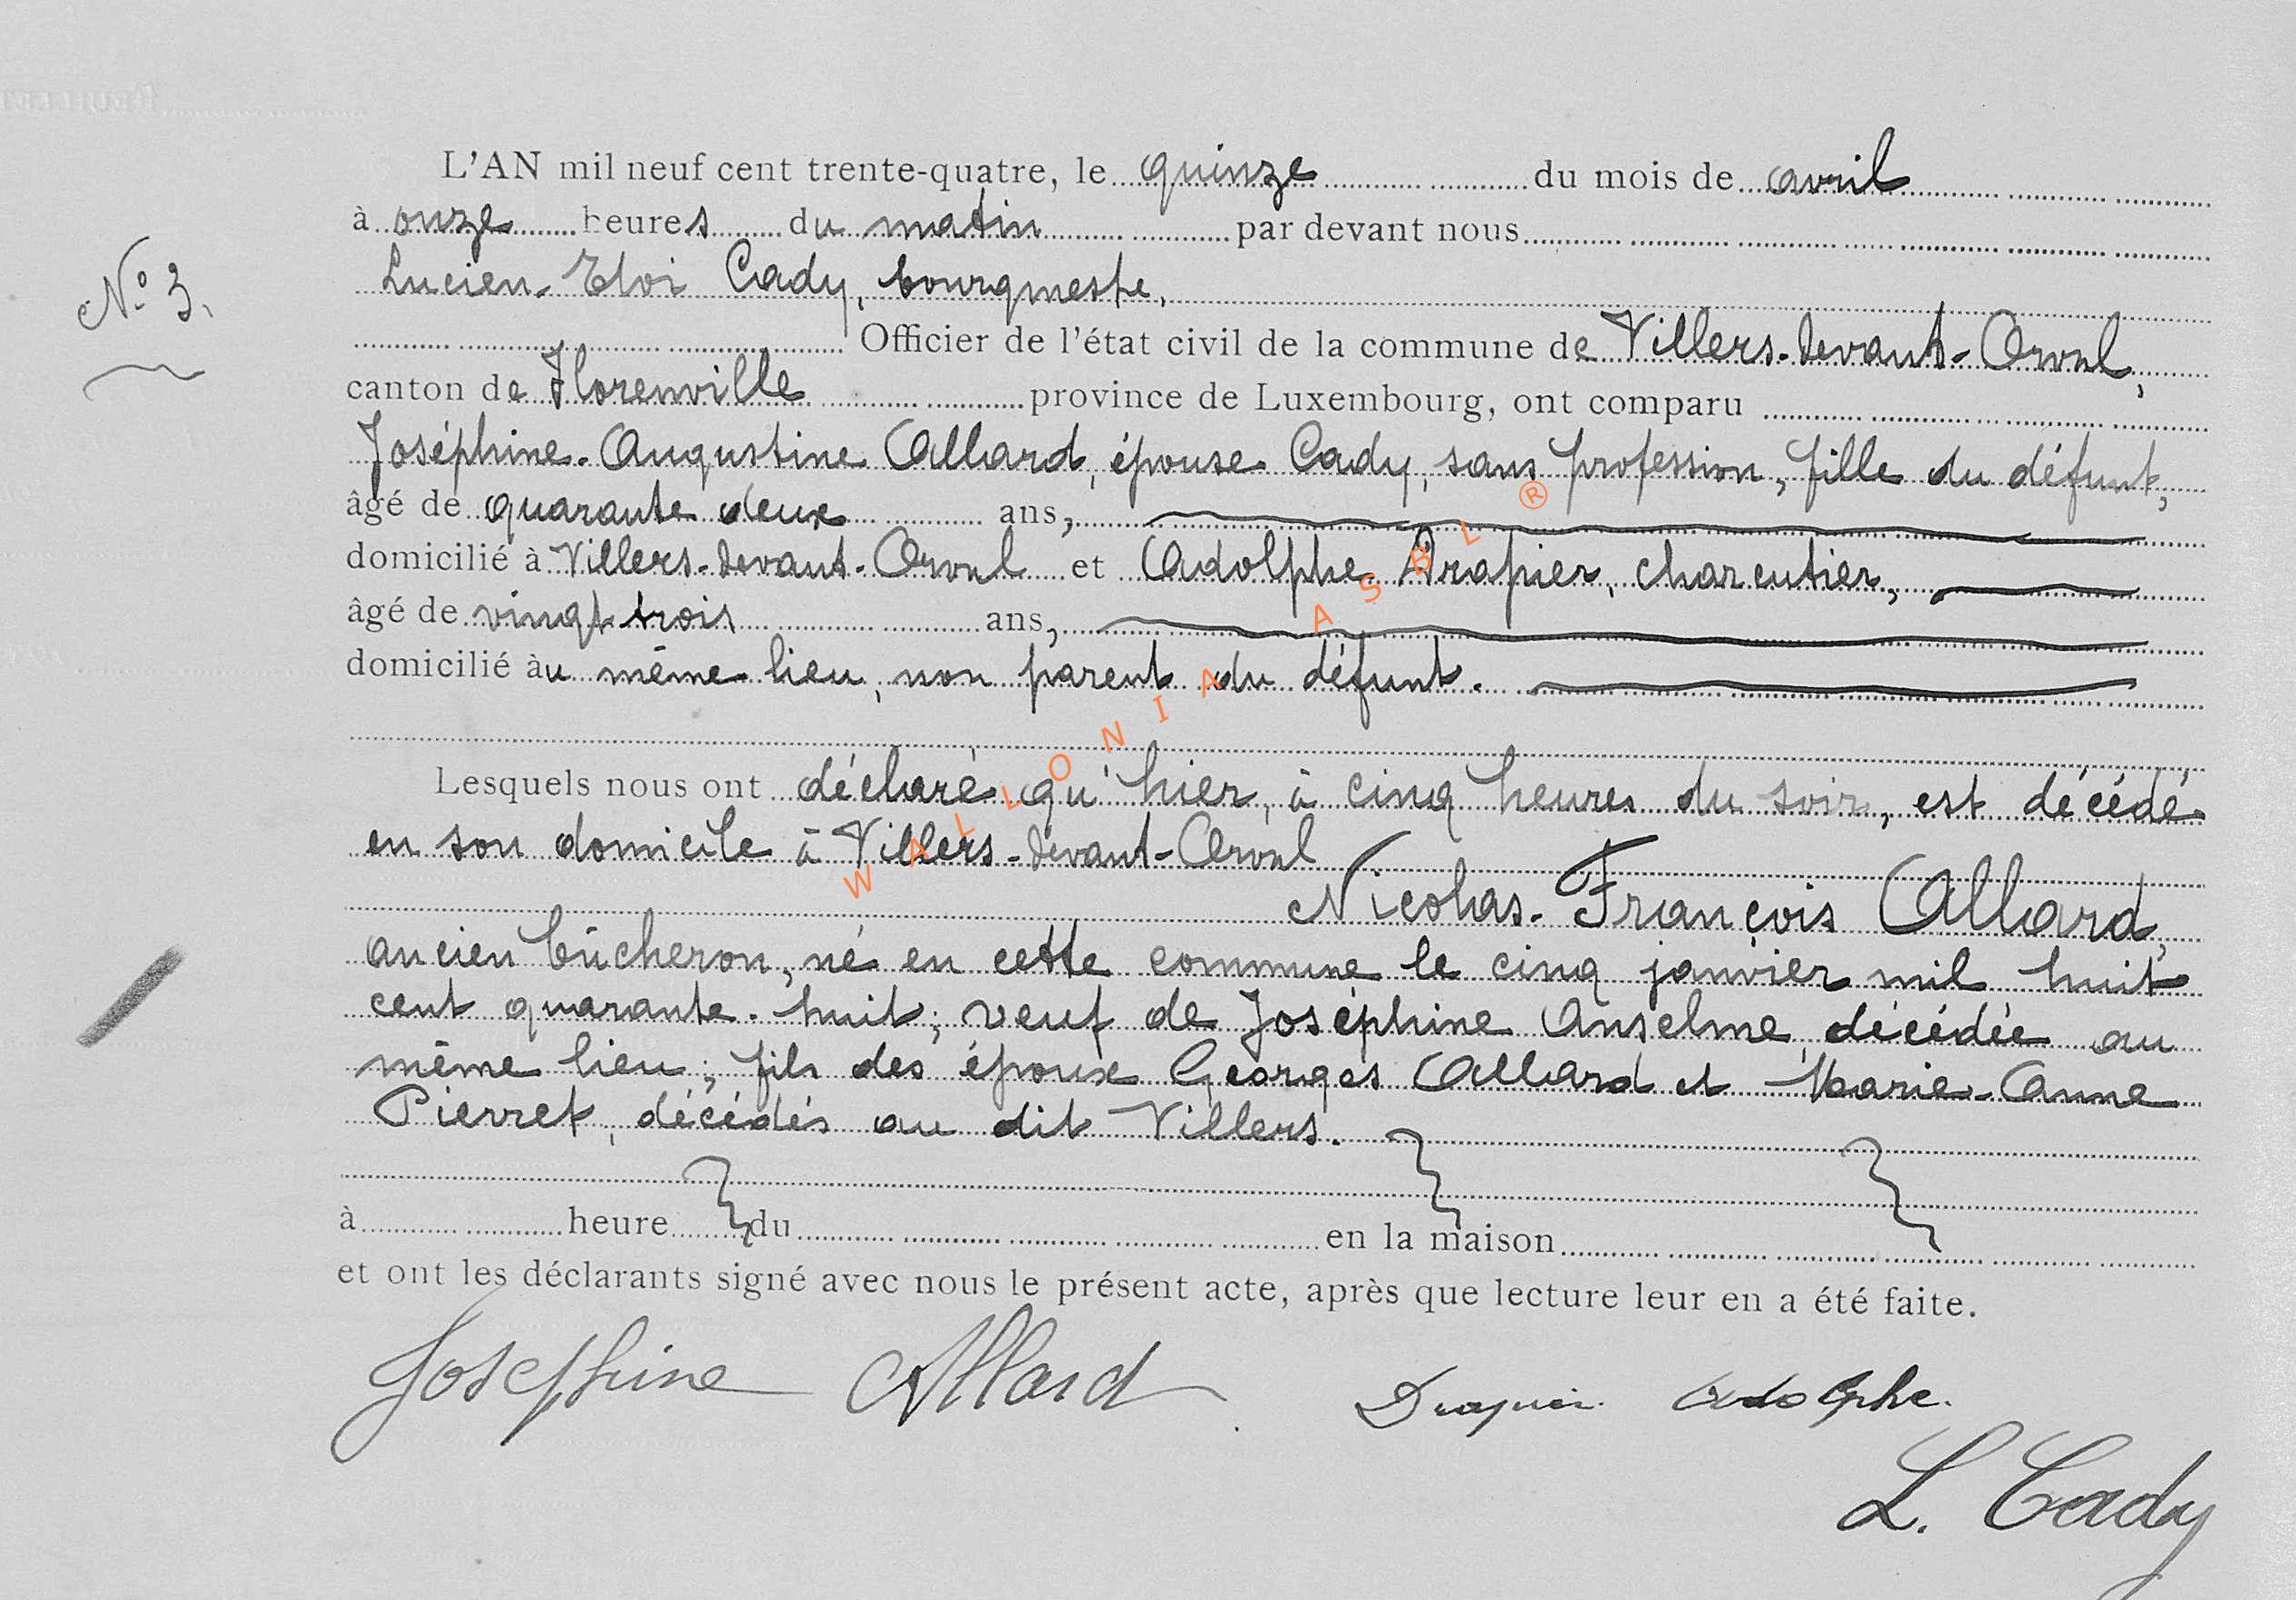 L'AN mil neuf cent trente-quatre, le quinze du mois de avril
à onze heures du matin par devant nous
Nº 3.
Lucien-Eloi Cady, bourgmestre,
Officier de l'état civil de la commune de Villers-devant-Orval,
canton de Florenville province de Luxembourg, ont comparu
Joséphine-Augustine Allard, épouse Cady, sans profession, fille du défunt,
âgé de quarante deux ans,
domicilié à Villers-devant-Orval et Adolphe Drapier, charcutier,
âgé de vingt trois ans,
domicilié àu même lieu, non parent du défunt.
Lesquels nous ont déclaré qu'hier, à cinq heures du soir, est décédé
en son domicile à Villers-devant-Orval
Nicolas-François Allard,
ancien bûcheron, né en cette commune le cinq janvier mil huit
cent quarante-huit; veuf de Joséphine Anselme, décédée au
même lieu; fils des époux Georges Allard et Marie-Anne
Pierret, décédés au dit Villers.
à heure du en la maison
et ont les déclarants signé avec nous le présent acte, après que lecture leur en a été faite.
Josephine Allard Drapier Adolphe.
L. Cady
WALLONIA ASBL ®